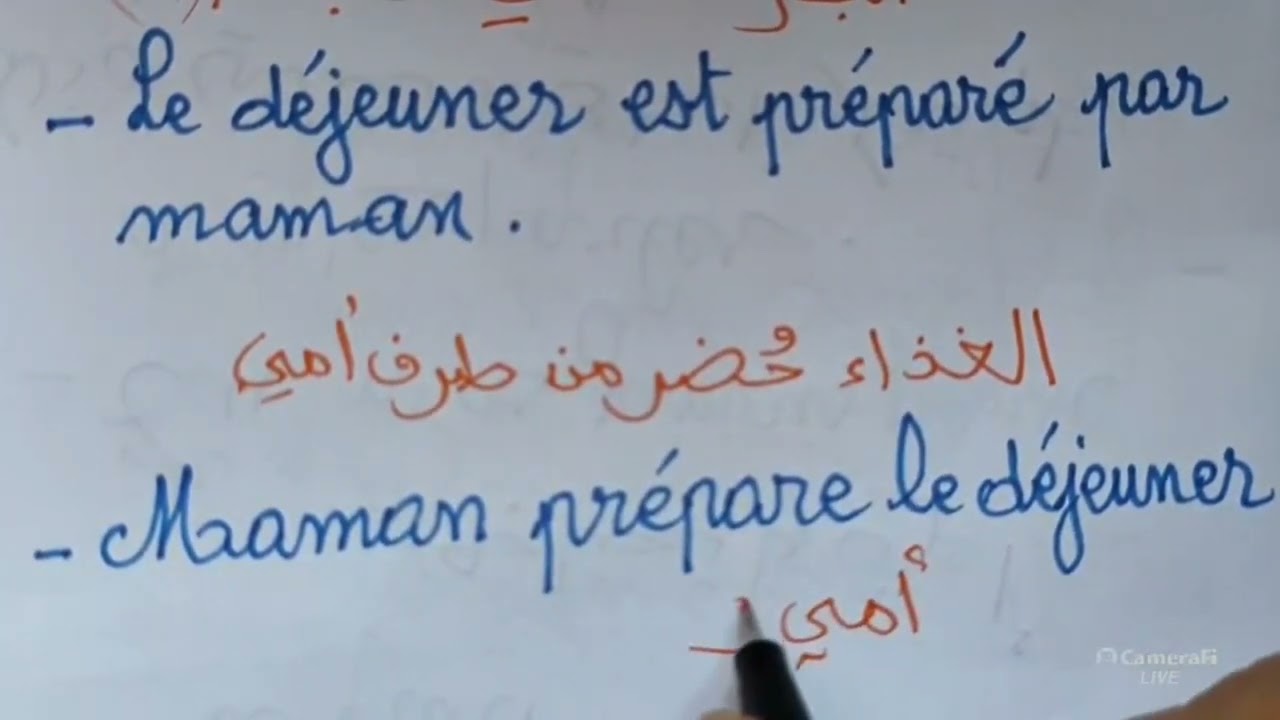 - Le déjeuner est préparé par
maman.
الغذاء مُحضر من طرف أمي
- Maman prépare le déjeuner
أمي
CameraFi
LIVE